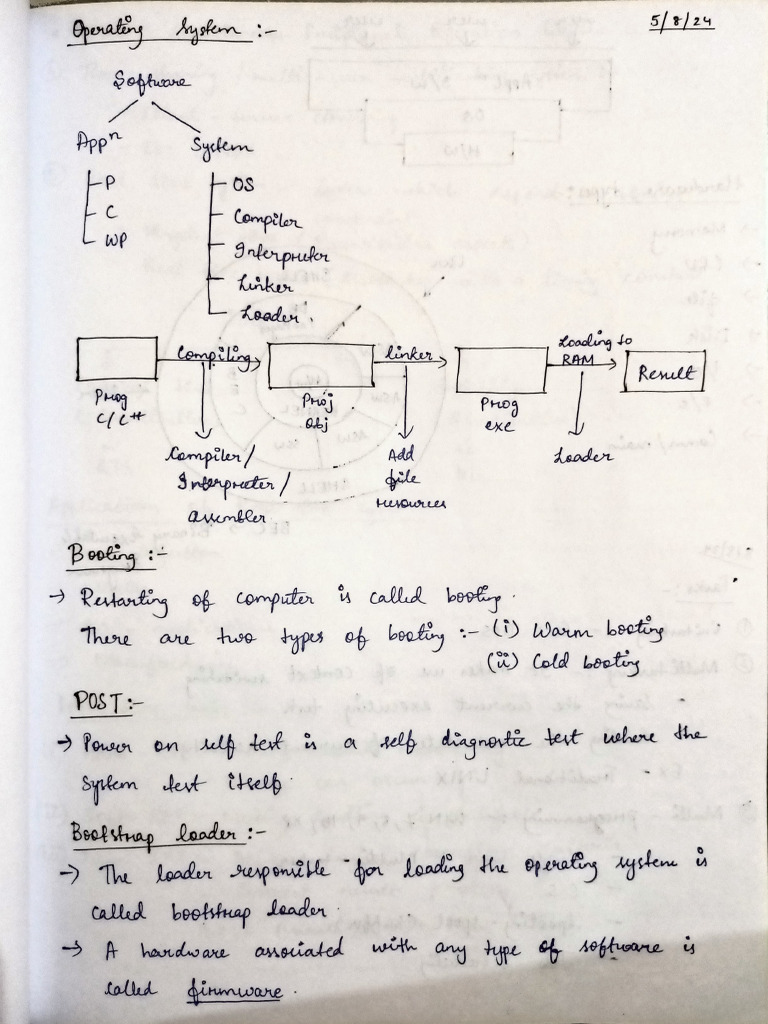 Operating System :-
5/8/24
Software
Appⁿ
System
P
C
WP
OS
Compiler
Interpreter
Linker
Loader
Compiling
linker
Loading to
RAM
Result
Prog
C/C++
Proj
obj
Prog
exe
Compiler/
Interpreter/
assembler
Add
file
resources
Loader
Booting :-
→ Restarting of computer is called booting.
There are two types of booting :- (i) Warm booting
(ii) Cold booting
POST :-
→ Power on self test is a self diagnostic test where the
System test itself.
Bootstrap loader :-
→ The loader responsible for loading the operating system is
called bootstrap loader.
→ A hardware associated with any type of software is
called firmware.